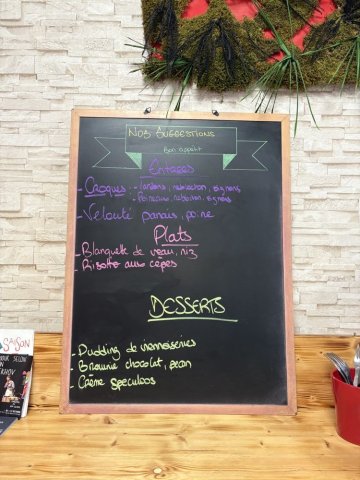 Nos Suggestions
Bon appétit
Entrées
- Croques - Lardons, reblochon, oignons
- Poireaux, reblochon, oignons
- Velouté panais, poire
Plats
- Blanquette de veau, riz
- Risotto aux cèpes
DESSERTS
- Pudding de viennoiseries
- Brownie chocolat, pecan
- Crème speculoos
SAISON